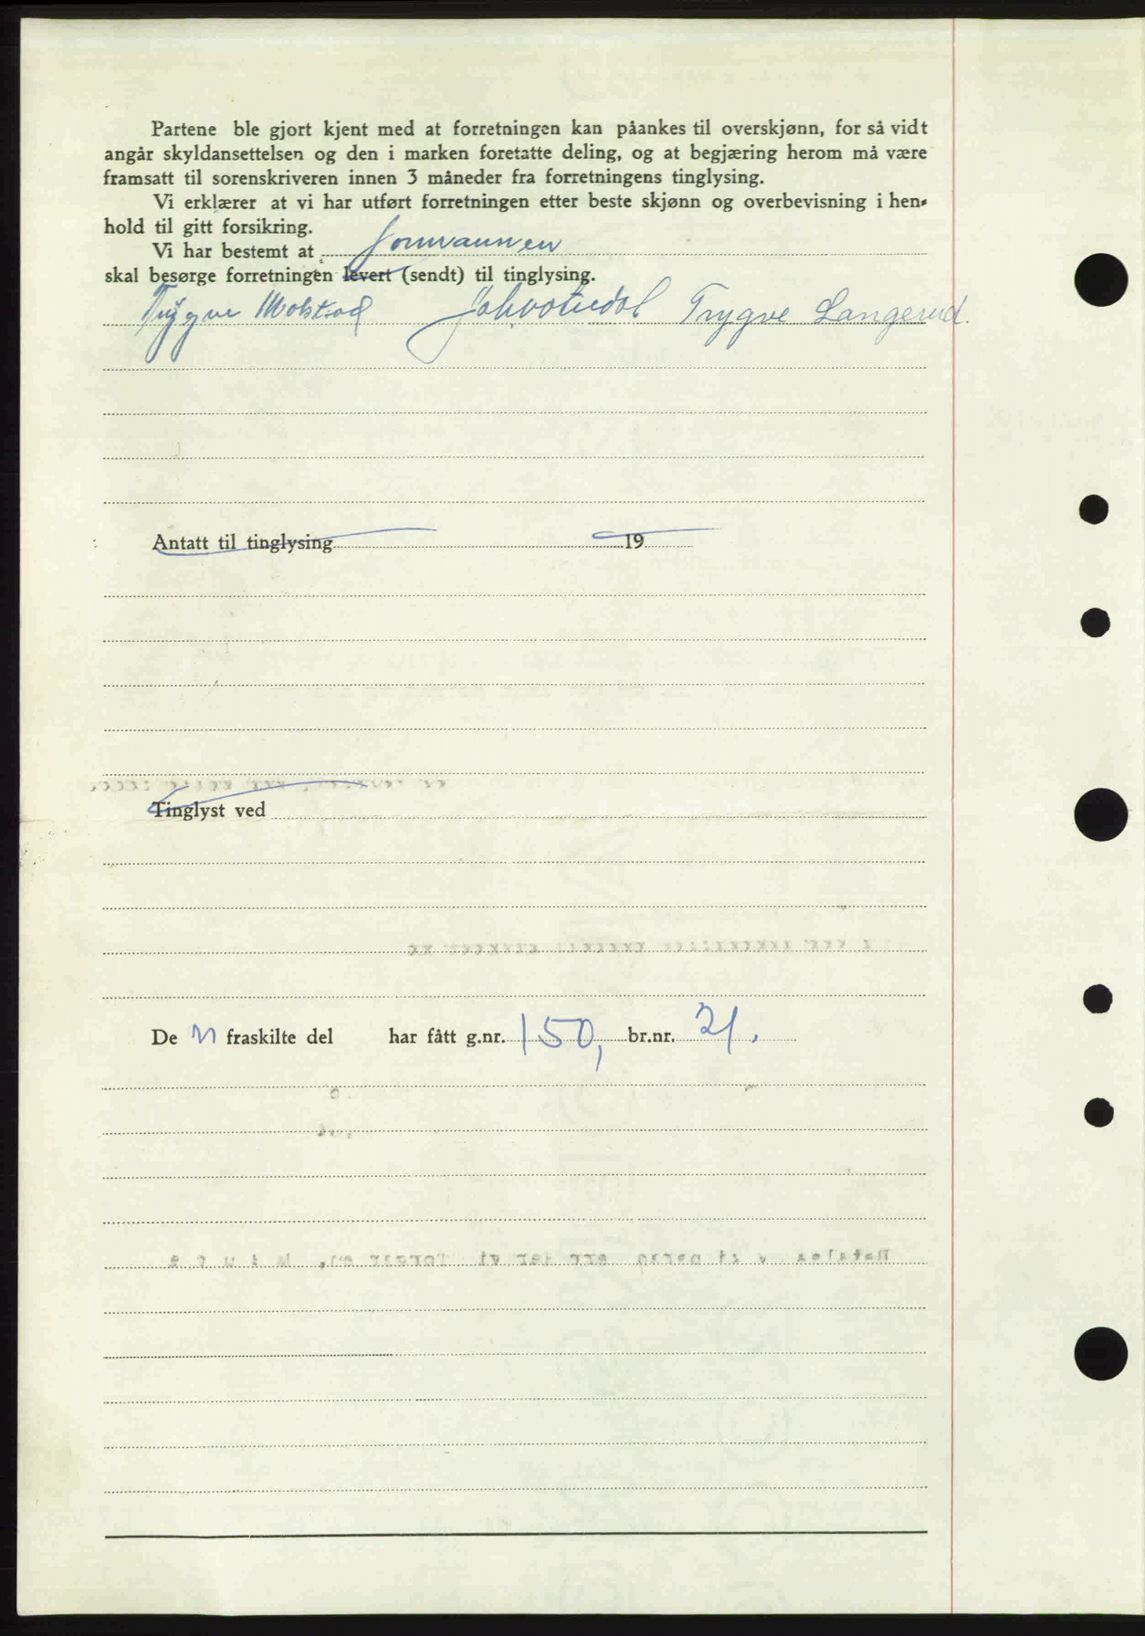 Partene ble gjort kjent med at forretningen kan påankes til overskjønn, for så vidt
angår skyldansettelsen og den i marken foretatte deling, og at begjæring herom må være
framsatt til sorenskriveren innen 3 måneder fra forretningens tinglysing.
Vi erklærer at vi har utført forretningen etter beste skjønn og overbevisning i hen-
hold til gitt forsikring.
Vi har bestemt at formannen
skal besørge forretningen levert (sendt) til tinglysing.
Trygve Molstad Trygve Langerud.
Antatt til tinglysing 19
Tinglyst ved
De n fraskilte del har fått g.nr. 150, br.nr. 21.